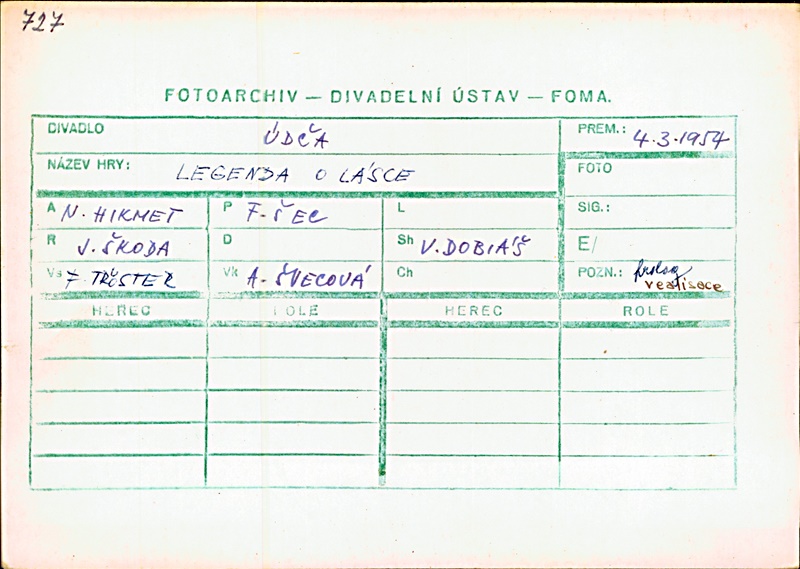 727
FOTOARCHIV — DIVADELNÍ ÚSTAV — FOMA.
DIVADLO ÚDČA PREM.: 4.3.1954
NÁZEV HRY: LEGENDA O LÁSCE FOTO
A N. HIKMET P F. ŠEC L SIG.:
R J. ŠKODA D Sh V. DOBIÁŠ E/
Vs F. TRÖSTER Vk A. ŠVECOVÁ Ch POZN.: prolog
realisace
HEREC ROLE HEREC ROLE